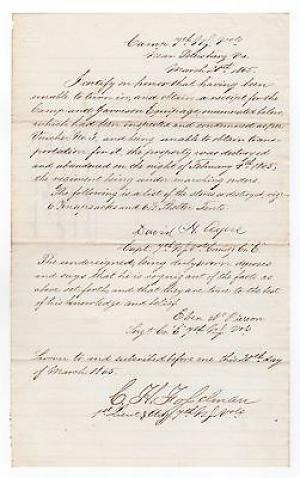 Camp 7th N.J. Vols
Near Petersburg Va.
March 8th, 1865.
I certify on honor that having been
unable to turn in, and obtain a receipt for the
Camp and Garrison Equipage enumerated below,
which had been inspected and condemned as per
Voucher No 3, and being unable to obtain trans-
portation for it, the property was destroyed
and abandoned on the night of February 4th 1865,
the regiment being under marching orders.
The following is a list of the stores so destroyed, viz;
6 Knapsacks and 6 Shelter Tents.
David H. Ayers
Capt. 7th N.J. Vols Comdg Co. E
The undersigned, being duly sworn deposes
and says that he is cognizant of the facts as
above set forth, and that they are true to the best
of his knowledge and belief.
Eben Pierson
Sergt Co. E 7th N.J. Vols
Sworn to and subscribed before me this 8th day
of March 1865.
C. H.
1st Lieut & Adjt 7th N.J. Vols